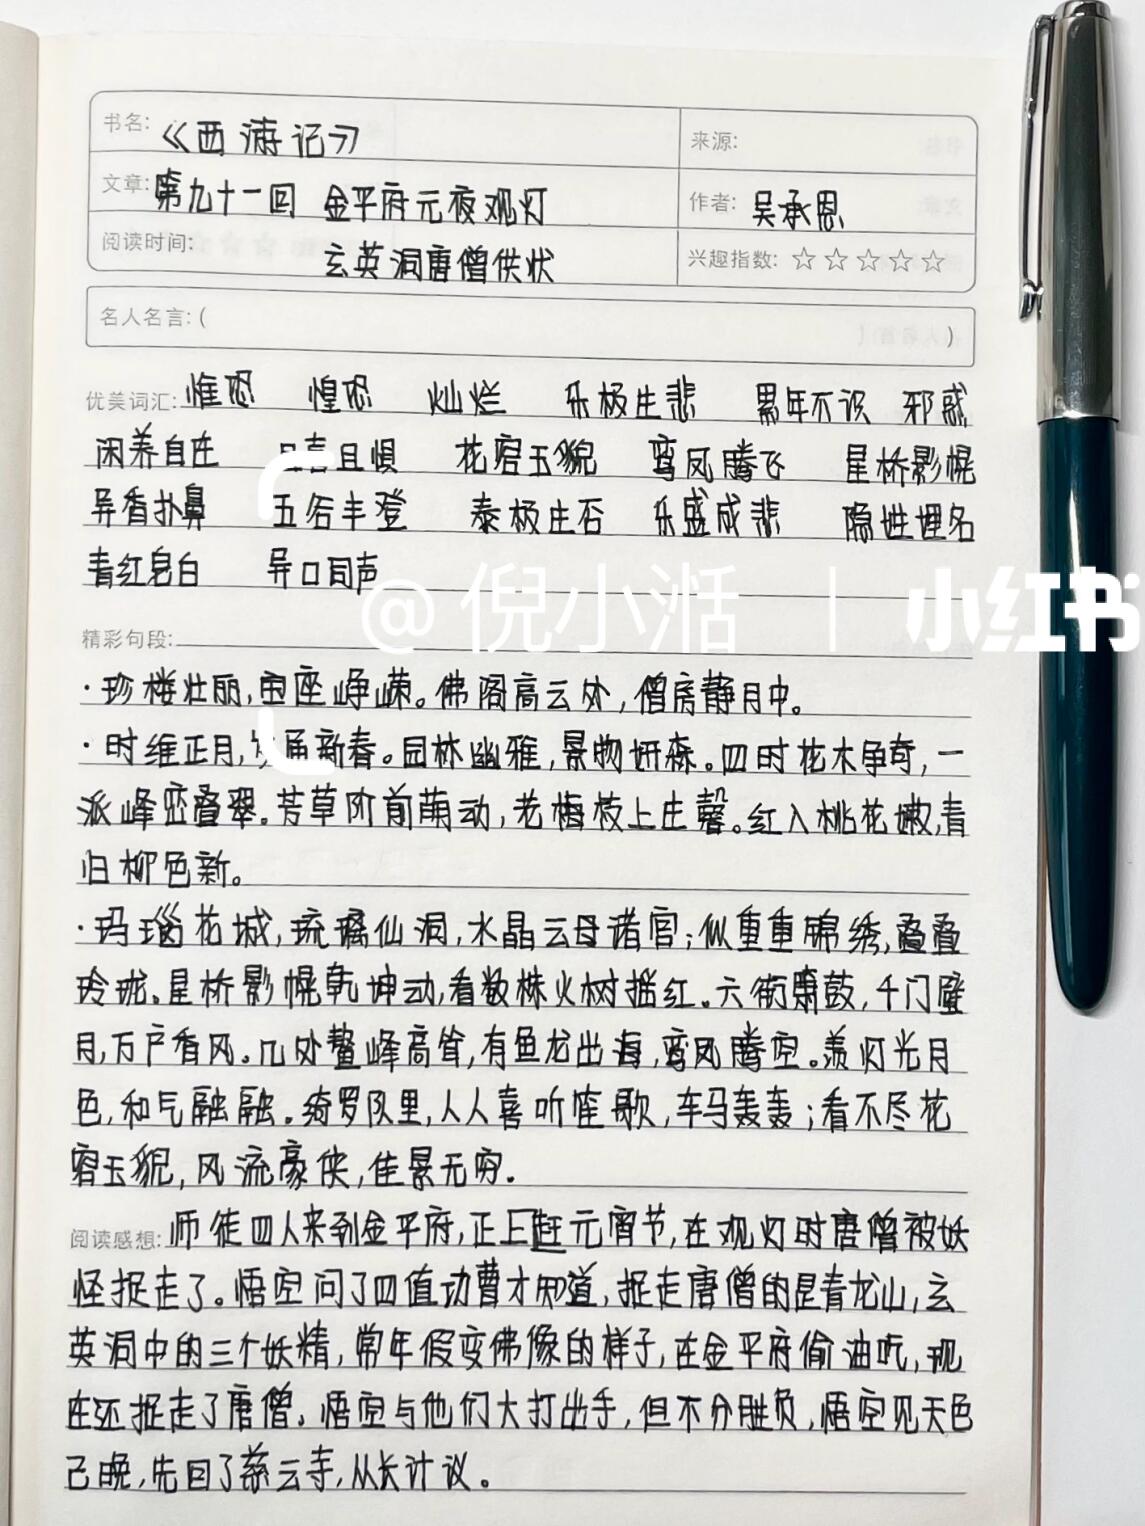 书名: 《西游记》
来源:
文章: 第九十一回 金平府元夜观灯
作者: 吴承恩
阅读时间: 玄英洞唐僧供状
兴趣指数: ☆☆☆☆☆
名人名言: ( )
优美词汇: 惟恐 惶恐 灿烂 乐极生悲 累年不识 邪惑
闲养自在 且喜且惧 花容玉貌 鸾凤腾飞 星桥影幌
异香扑鼻 五谷丰登 泰极生否 乐盛成悲 隐姓埋名
青红皂白 异口同声
@倪小湉 | 小红书
精彩句段:
·珍楼壮丽,宝座峥嵘。佛阁高云外,僧房静月中。
·时维正月,岁届新春。园林幽雅,景物妍森。四时花木争奇,一
派峰峦叠翠。芳草阶前萌动,老梅枝上生馨。红入桃花嫩,青
归柳色新。
·玛瑙花城,琉璃仙洞,水晶云母诸宫;似重重锦绣,叠叠
玲珑。星桥影幌乾坤动,看数株火树摇红。六街箫鼓,千门璧
月,万户香风。几处鳌峰高耸,有鱼龙出海,鸾凤腾空。羡灯光月
色,和气融融。绮罗队里,人人喜听笙歌,车马轰轰;看不尽花
容玉貌,风流豪侠,佳景无穷。
阅读感想: 师徒四人来到金平府,正上赶元宵节,在观灯时唐僧被妖
怪捉走了。悟空问了四值功曹才知道,捉走唐僧的是青龙山,玄
英洞中的三个妖精,常年假变佛像的样子,在金平府偷油吃,现
在还捉走了唐僧。悟空与他们大打出手,但不分胜负,悟空见天色
已晚,先回了慈云寺,从长计议。